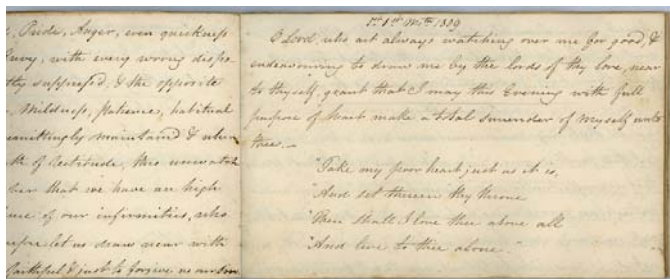 , Pride, Anger, even quickness
Envy, with every wrong dispo-
tly suppressed, & the opposite
, Mildness, Patience, habitual
remittingly maintained & when
th of rectitude, this unwatch
her that we have an high
of our infirmities, who
let us draw near with
faithful & just to forgive us our Sins
1st Mth 1809
O Lord, who art always watching over me for good, &
endeavouring to draw me by the cords of thy love, near
to thyself, grant that I may this Evening with full
purpose of heart make a total surrender of myself unto
thee.—
"Take my poor heart just as it is,
"And set therein thy throne
"Then shall I love thee above all
"And live to thee alone."